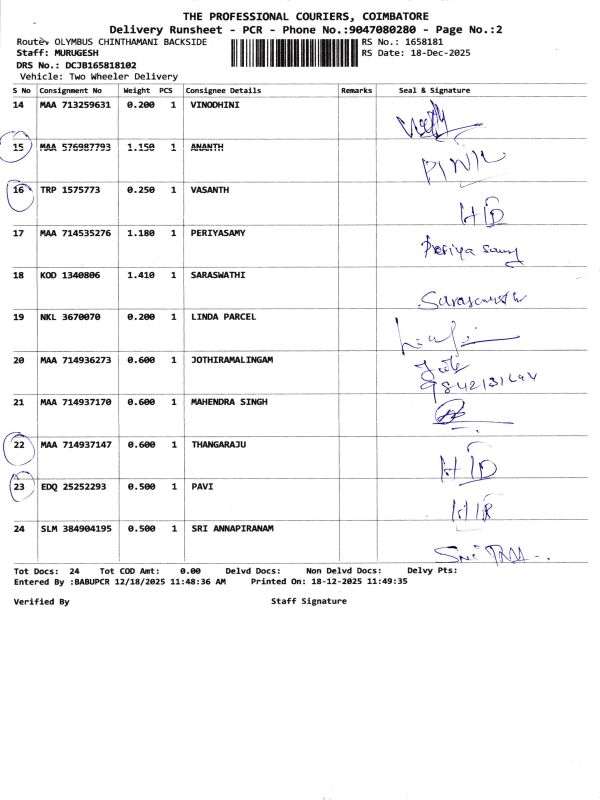 THE PROFESSIONAL COURIERS, COIMBATORE
Delivery Runsheet - PCR - Phone No.:9047080280 - Page No.:2
Route: OLYMBUS CHINTHAMANI BACKSIDE RS No.: 1658181
Staff: MURUGESH RS Date: 18-Dec-2025
DRS No.: DCJB165818102
Vehicle: Two Wheeler Delivery
S No Consignment No Weight PCS Consignee Details Remarks Seal & Signature
14 MAA 713259631 0.200 1 VINODHINI
15 MAA 576987793 1.150 1 ANANTH
16 TRP 1575773 0.250 1 VASANTH
HD
17 MAA 714535276 1.180 1 PERIYASAMY
Periyasamy
18 KOD 1340806 1.410 1 SARASWATHI
19 NKL 3670070 0.200 1 LINDA PARCEL
20 MAA 714936273 0.600 1 JOTHIRAMALINGAM
21 MAA 714937170 0.600 1 MAHENDRA SINGH
22 MAA 714937147 0.600 1 THANGARAJU
HD
23 EDQ 25252293 0.500 1 PAVI
24 SLM 384904195 0.500 1 SRI ANNAPIRANAM
Tot Docs: 24 Tot COD Amt: 0.00 Delvd Docs: Non Delvd Docs: Delvy Pts:
Entered By :BABUPCR 12/18/2025 11:48:36 AM Printed On: 18-12-2025 11:49:35
Verified By Staff Signature